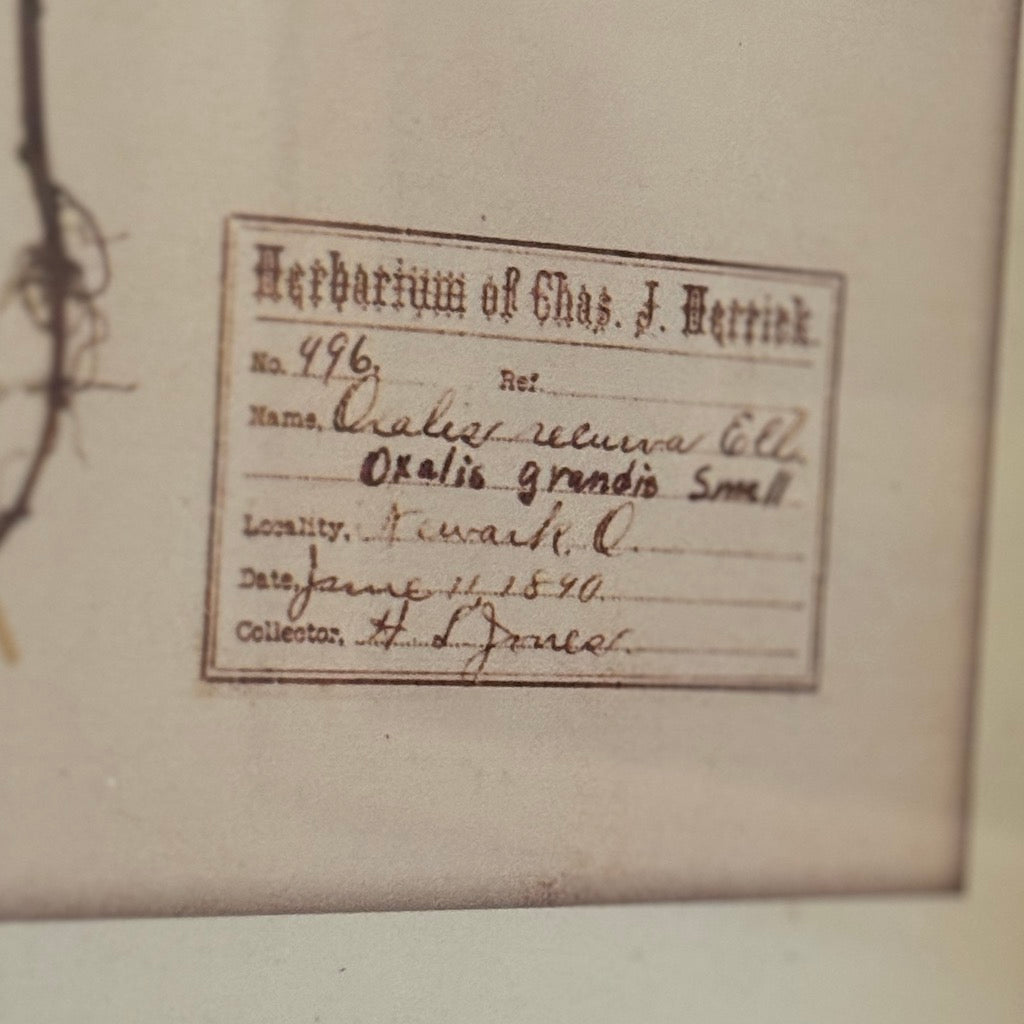 Herbarium of Chas. J. Herrick.
No. 496. Ref.
Name, Oxalis recurva Ell.
Oxalis grandis Small
Locality, Newark, O.
Date, June 11, 1890.
Collector, H L Jones.